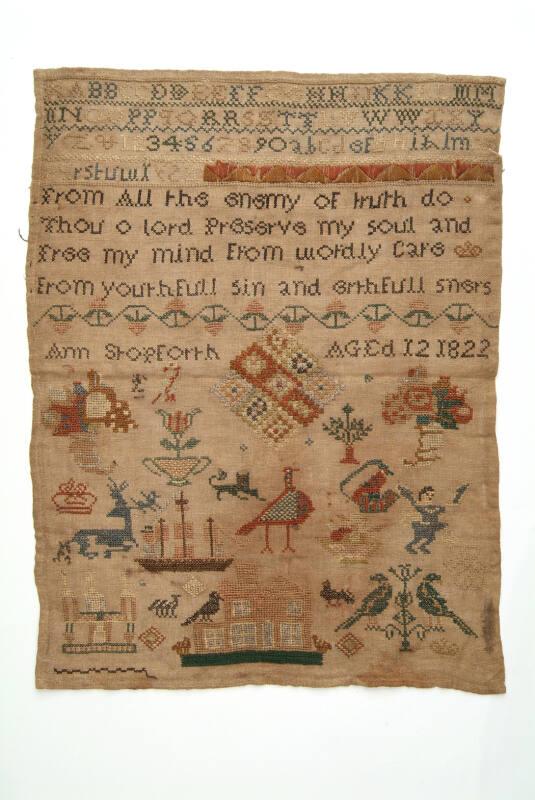 ABB DD EFF HH KK MM
N PP RRSS TT WW
3456 890abcdef hiklm
rstuuw
From All the enemy of truth do
Thou o lord Preserve my soul and
free my mind from wordly Care
From youthfull sin and erthfull sners
Ann Stopforth AGEd 12 1822